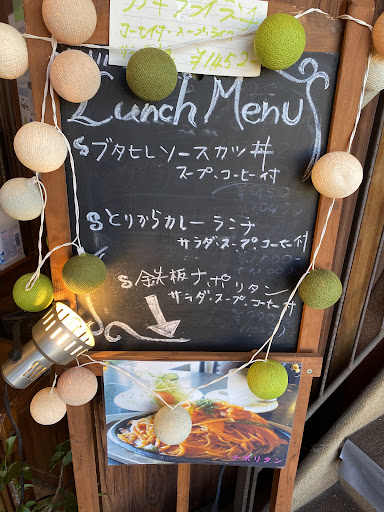 カキフライランチ
コーヒー付・スープ・ライス
¥1452
Lunch Menu
§ブタヒレソースカツ丼
スープ、コーヒー付
§とりからカレーランチ
サラダ・スープ、コーヒー付
§鉄板ナポリタン
サラダ・スープ、コーヒー付
ポリタン